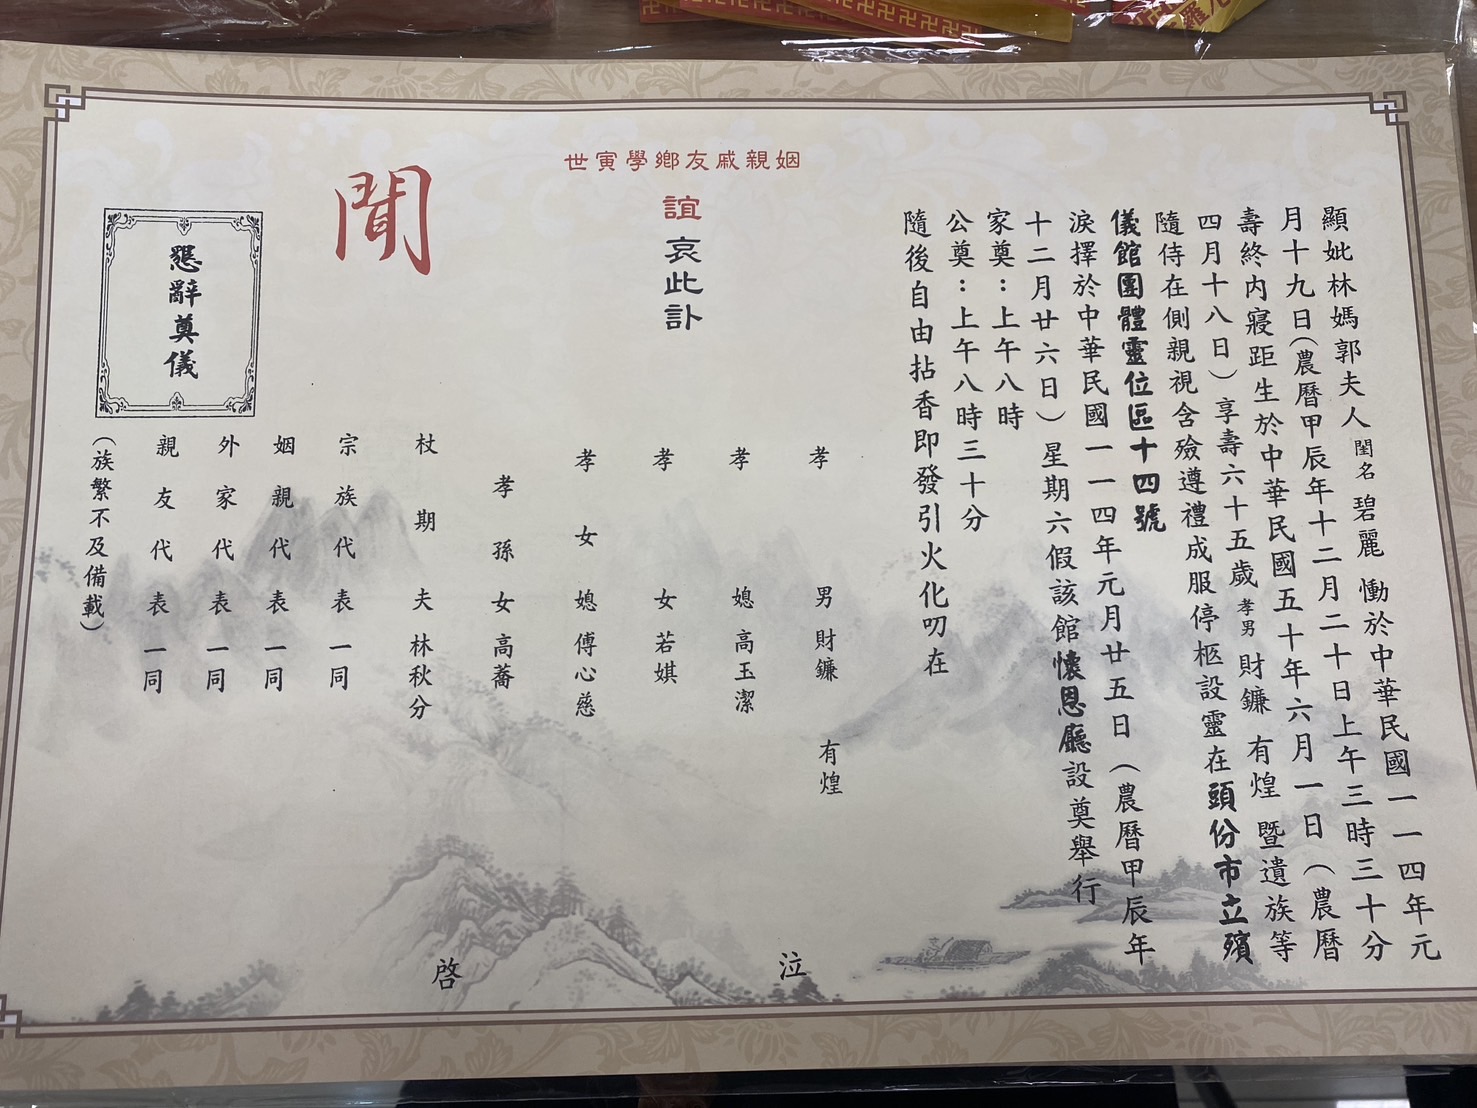 顯妣林媽郭夫人閨名碧麗慟於中華民國一一四年元
月十九日(農曆甲辰年十二月二十日上午三時三十分
壽終內寢距生於中華民國五十年六月一日(農曆
四月十八日)享壽六十五歲孝男財鐮有煌暨遺族等
隨侍在側親視含殮遵禮成服停柩設靈在頭份市立殯
儀館團體靈位區十四號
淚擇於中華民國一一四年元月廿五日(農曆甲辰年
十二月廿六日)星期六假該館懷恩廳設奠舉行
家奠:上午八時
公奠:上午八時三十分
隨後自由拈香即發引火化叨在
姻親戚友鄉學寅世
誼哀此訃
聞
孝男財鐮有煌
孝媳高玉潔
孝女若娸
孝女媳傅心慈
孝孫女高蕎
杖期夫林秋分
宗族代表一同
姻親代表一同
外家代表一同
親友代表一同
(族繁不及備載)
泣
啓
懇辭奠儀